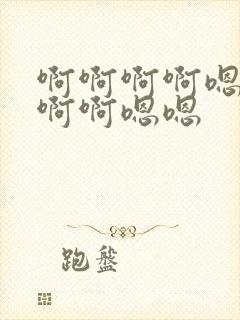 啊啊啊啊嗯
啊啊嗯嗯
跑盘